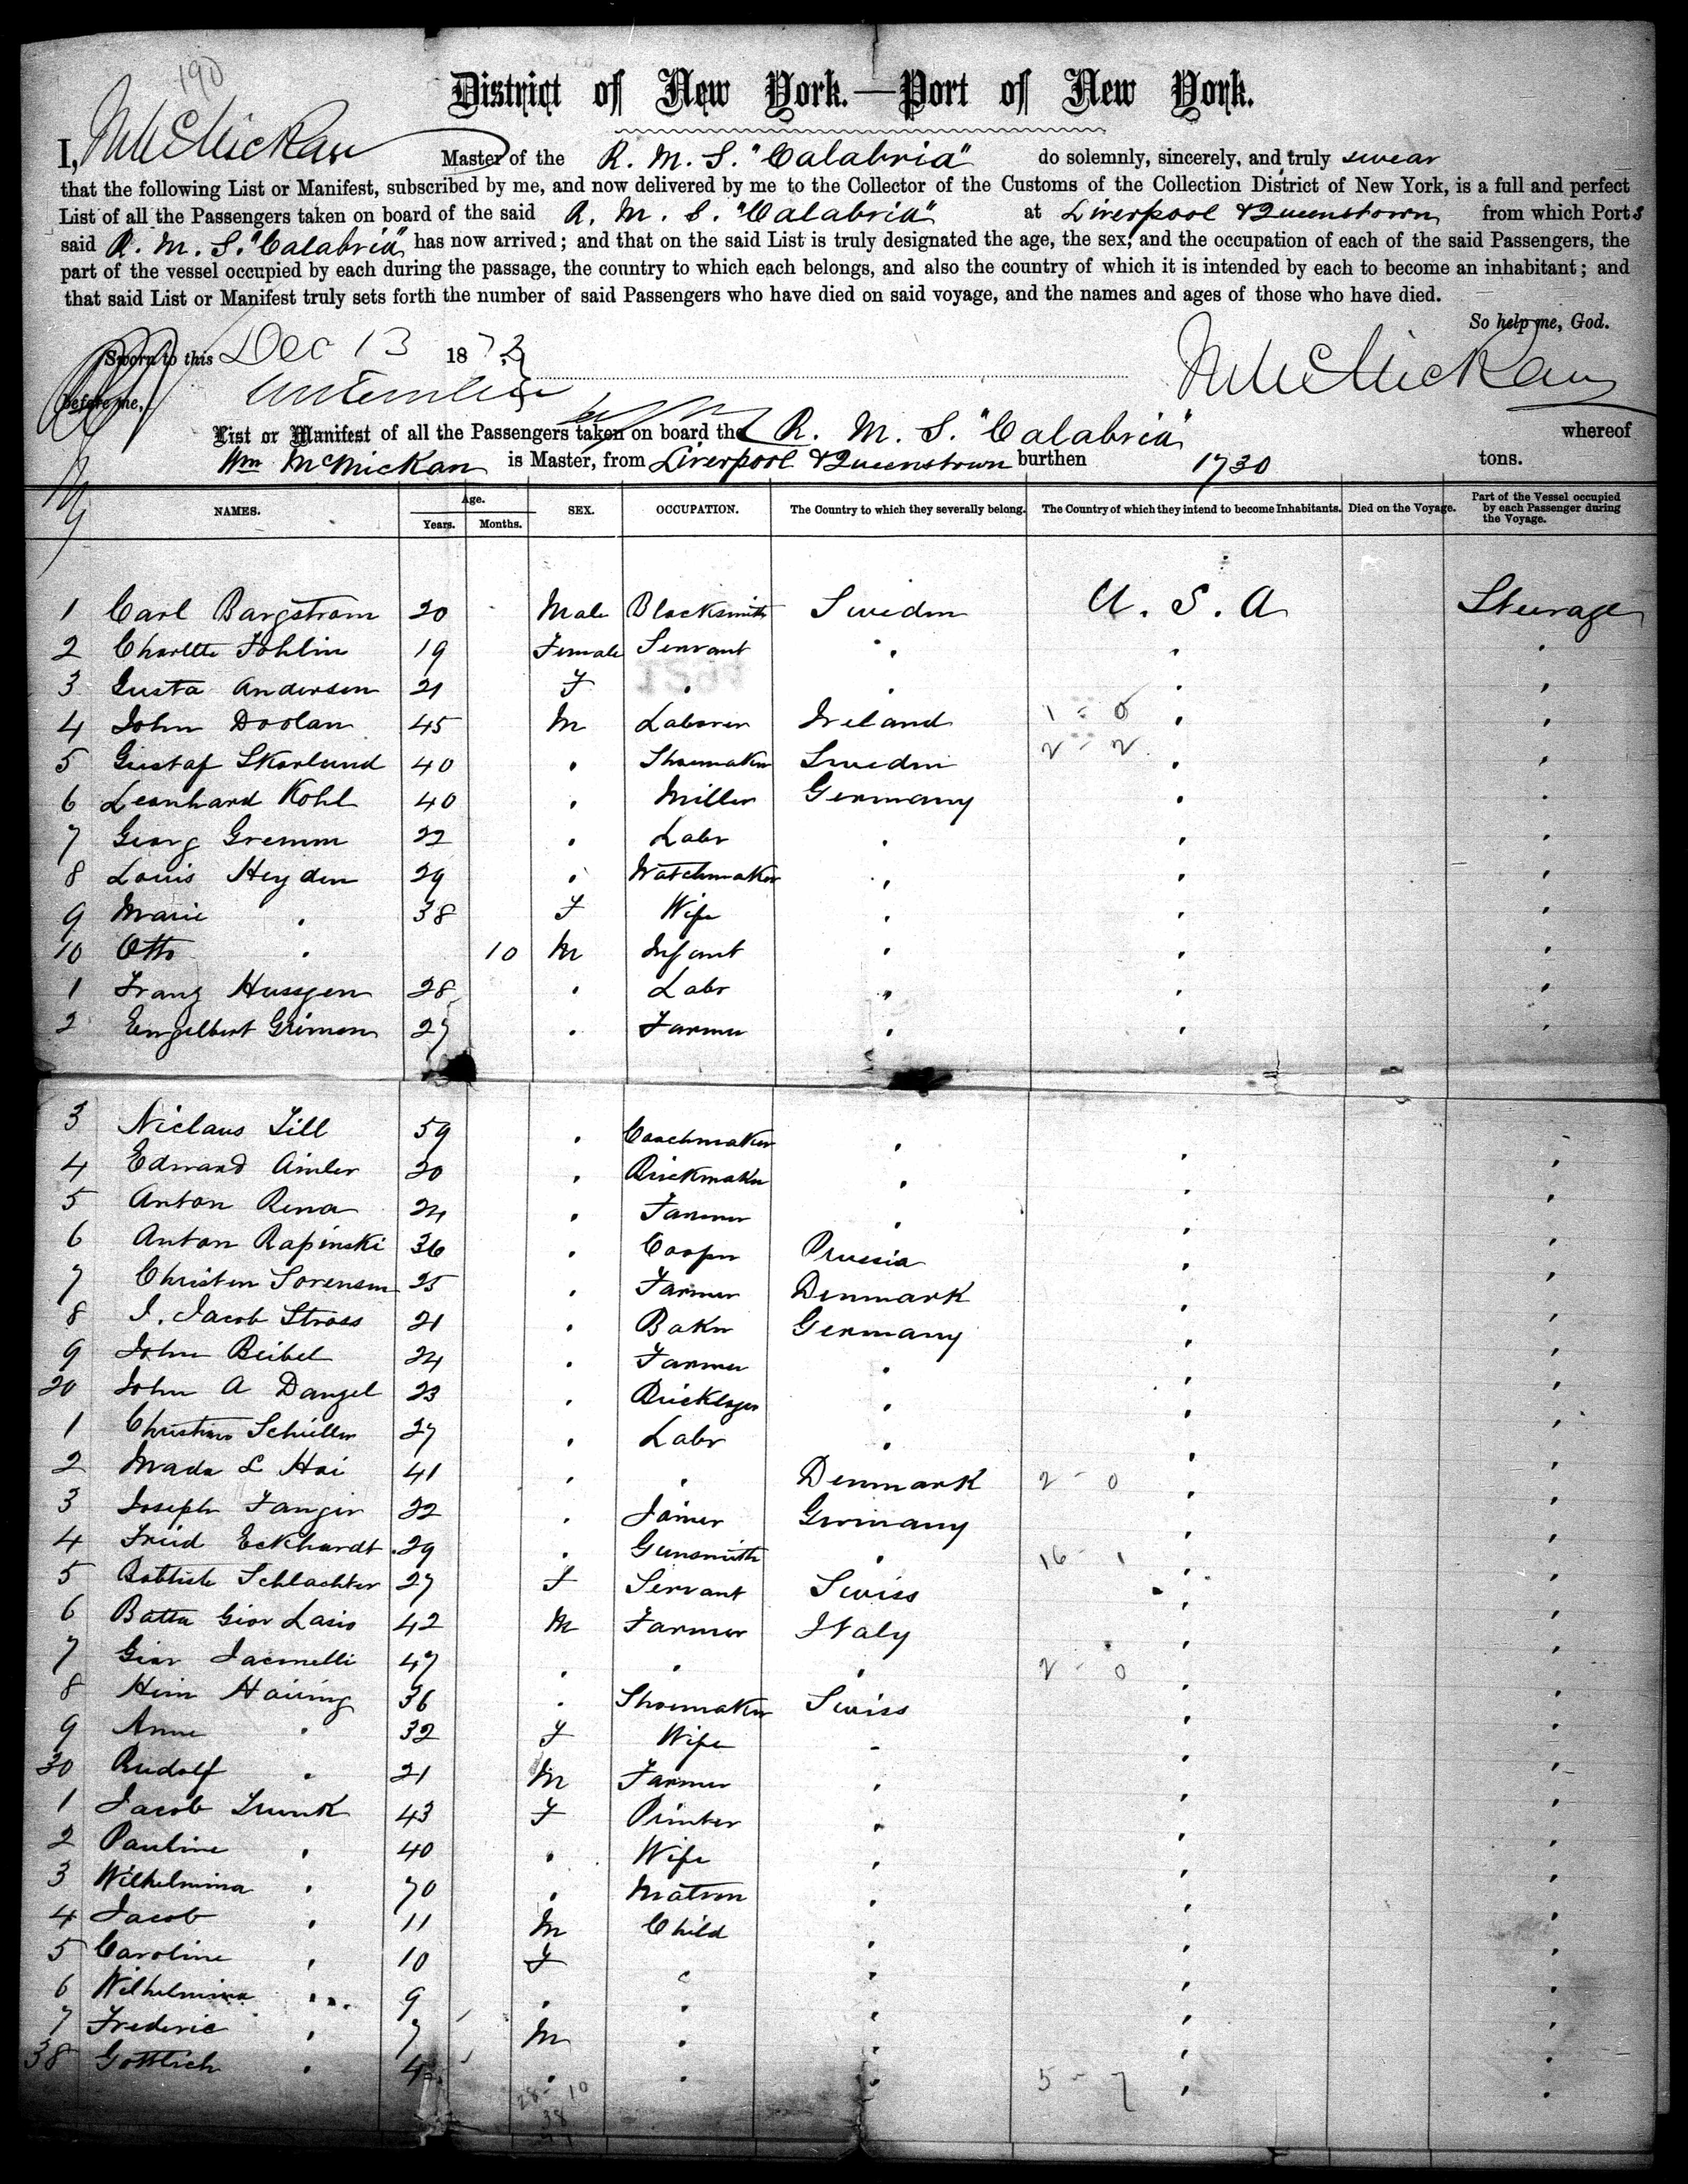 190
District of New York.—Port of New York.
I, Wm McMickan Master of the R. M. S. "Calabria" do solemnly, sincerely, and truly swear
that the following List or Manifest, subscribed by me, and now delivered by me to the Collector of the Customs of the Collection District of New York, is a full and perfect
List of all the Passengers taken on board of the said R. M. S. "Calabria" at Liverpool & Queenstown from which Ports
said R. M. S. "Calabria" has now arrived; and that on the said List is truly designated the age, the sex, and the occupation of each of the said Passengers, the
part of the vessel occupied by each during the passage, the country to which each belongs, and also the country of which it is intended by each to become an inhabitant; and
that said List or Manifest truly sets forth the number of said Passengers who have died on said voyage, and the names and ages of those who have died.
So help me, God.
Sworn to this Dec 13 187
before me, Wm McMickan
List or Manifest of all the Passengers taken on board the R. M. S. "Calabria" whereof
Wm McMickan is Master, from Liverpool & Queenstown burthen 1730 tons.
NAMES. Age. Years. Months. SEX. OCCUPATION. The Country to which they severally belong. The Country of which they intend to become Inhabitants. Died on the Voyage. Part of the Vessel occupied by each Passenger during the Voyage.
1 Carl Bargstrom 20 Male Blacksmith Sweden U. S. A Steerage
2 Charlotte Fohlin 19 Female Servant "
3 Gusta Andersen 21 F " "
4 John Doolan 45 M Laborer Ireland 1 - 0 "
5 Gustaf Skarlund 40 " Shoemaker Sweden 2 - 2 "
6 Leonhard Kohl 40 " Miller Germany "
7 Georg Gremm 22 " Labr " "
8 Louis Heyden 29 " Watchmaker " "
9 Marie " 38 F Wife " "
10 Otto " 10 M Infant " "
1 Franz Hussgen 28 " Labr " "
2 Engelbert Grimon 27 " Farmer " "
3 Niclaus Till 59 " Coachmaker " "
4 Edward Ainler 20 " Brickmaker " "
5 Anton Rena 24 " Farmer " "
6 Anton Rapinski 36 " Cooper Prussia "
7 Christen Sorensen 25 " Farmer Denmark "
8 J. Jacob Stross 21 " Baker Germany "
9 John Beibel 24 " Farmer " "
20 John A Dangel 23 " Bricklayer " "
1 Christian Schuller 27 " Labr " "
2 Mads L Hoi 41 " " Denmark 2 - 0 "
3 Joseph Fangir 22 " Joiner Germany "
4 Fried Eckhardt 29 " Gunsmith " 16 - 1 "
5 Schlachter 27 F Servant Swiss "
6 Batta Giov Lasio 42 M Farmer Italy "
7 Giov Iacinelli 47 " " " 2 - 0 "
8 Hein Hauing 36 " Shoemaker Swiss "
9 Anne " 32 F Wife " "
30 Rudolf " 21 M Farmer " "
1 Jacob Trunk 43 F Printer " "
2 Pauline " 40 " Wife " "
3 Wilhelmina " 70 " Matron " "
4 Jacob " 11 M Child " "
5 Caroline " 10 F " " "
6 Wilhelmina " 9 " " " "
7 Frederic " 7 M " " "
38 Gottlieb " 4 " " " 5 - 7 "
28 - 10
38